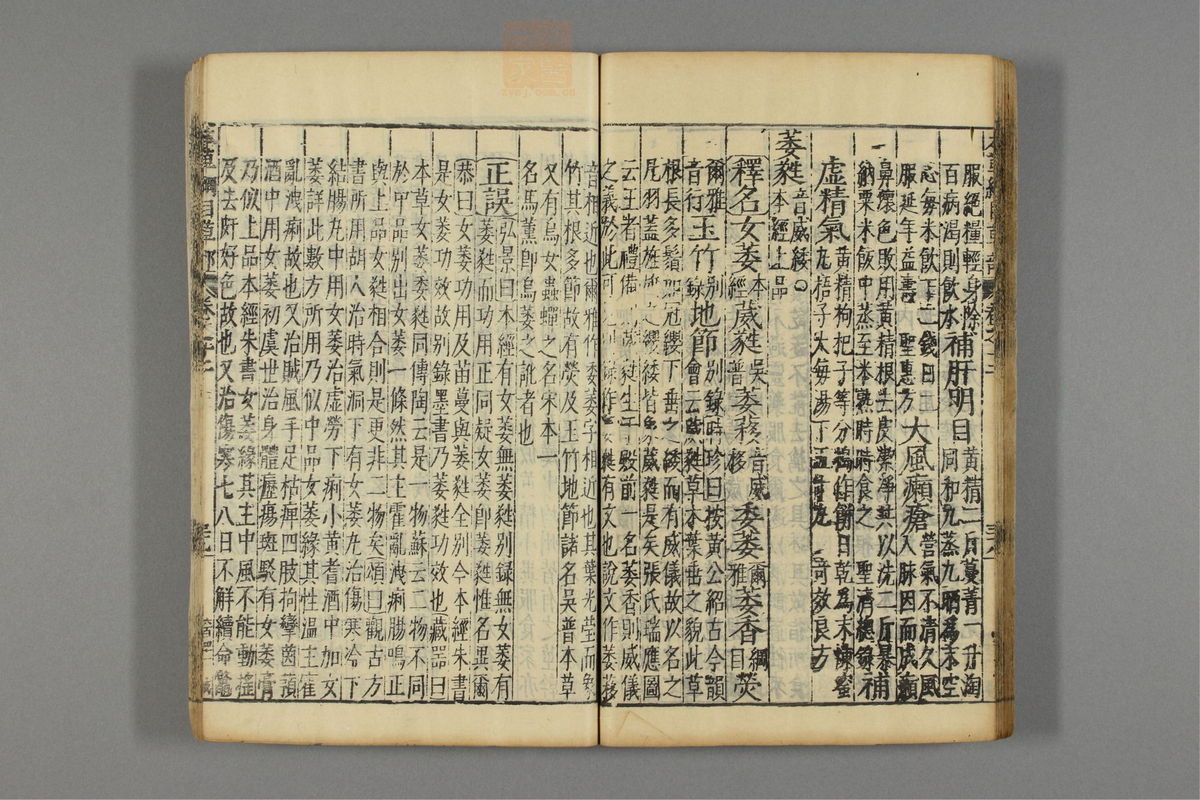 服絕糧輕身除
百病渴則飲水
補肝明目
黃精二斤蔓菁一升淘
同和九蒸九晒爲末空
心每米飲下二錢日
服延年益壽 聖惠方
大風癩瘡
營氣不清久風
入脉因而成癩
鼻壞色敗用黃精根去皮潔淨共以洗二斤暴
納粟米飯中蒸至米熟時時食之 聖濟總錄
補
虛精氣
黃精枸杞子等分搗作餅日乾爲末煉蜜
丸梧子大每湯下五十丸 奇效良方
萎蕤音威綏○本經上品
釋名女萎本經葳蕤吳普萎䔟音威移委萎爾雅萎香綱目熒
爾雅音行玉竹別錄地節別錄時珍曰按黃公紹古今韻
會云葳蕤草木葉垂之貌此草
根長多鬚如冠纓下垂之緌而有威儀故以名之
凡羽蓋旌旗之纓緌皆象葳蕤是矣張氏瑞應圖
云王者禮備則葳蕤生于殿前一名萎香則威儀
之義於此可見別錄作葳蕤省文也說文作萎䔟
音相近也爾雅作委萎字相近也其葉光瑩而象
竹其根多節故有熒及玉竹地節諸名吳普本草
又有烏女蟲蟬之名宋本一
名馬薰卽烏萎之訛者也
正誤弘景曰本經有女萎無萎蕤別錄無女萎有
萎蕤而功用正同疑女萎卽萎蕤惟名異爾
恭曰女萎功用及苗蔓與萎蕤全別今本經朱書
是女萎功效故別錄墨書乃萎蕤功效也藏器曰
本草女萎萎蕤同傳陶云是一物蘇云二物不同
於中品別出女萎一條然其主霍亂洩痢腸鳴正
與上品女蕤相合則是更非二物矣頌曰觀古方
書所用胡人治時氣洞下有女萎丸治傷寒冷下
結腸丸中用女萎治虛勞下痢小黃耆酒中加女
萎詳此數方所用乃似中品女萎緣其性溫主霍
亂洩痢故也又治賊風手足枯痺四肢拘攣茵蕷
酒中用女萎初虞世治身體癧瘍斑駁有女萎膏
乃似上品本經朱書女萎緣其主中風不能動搖
及去皯好色故也又治傷寒七八日不解續命鱉